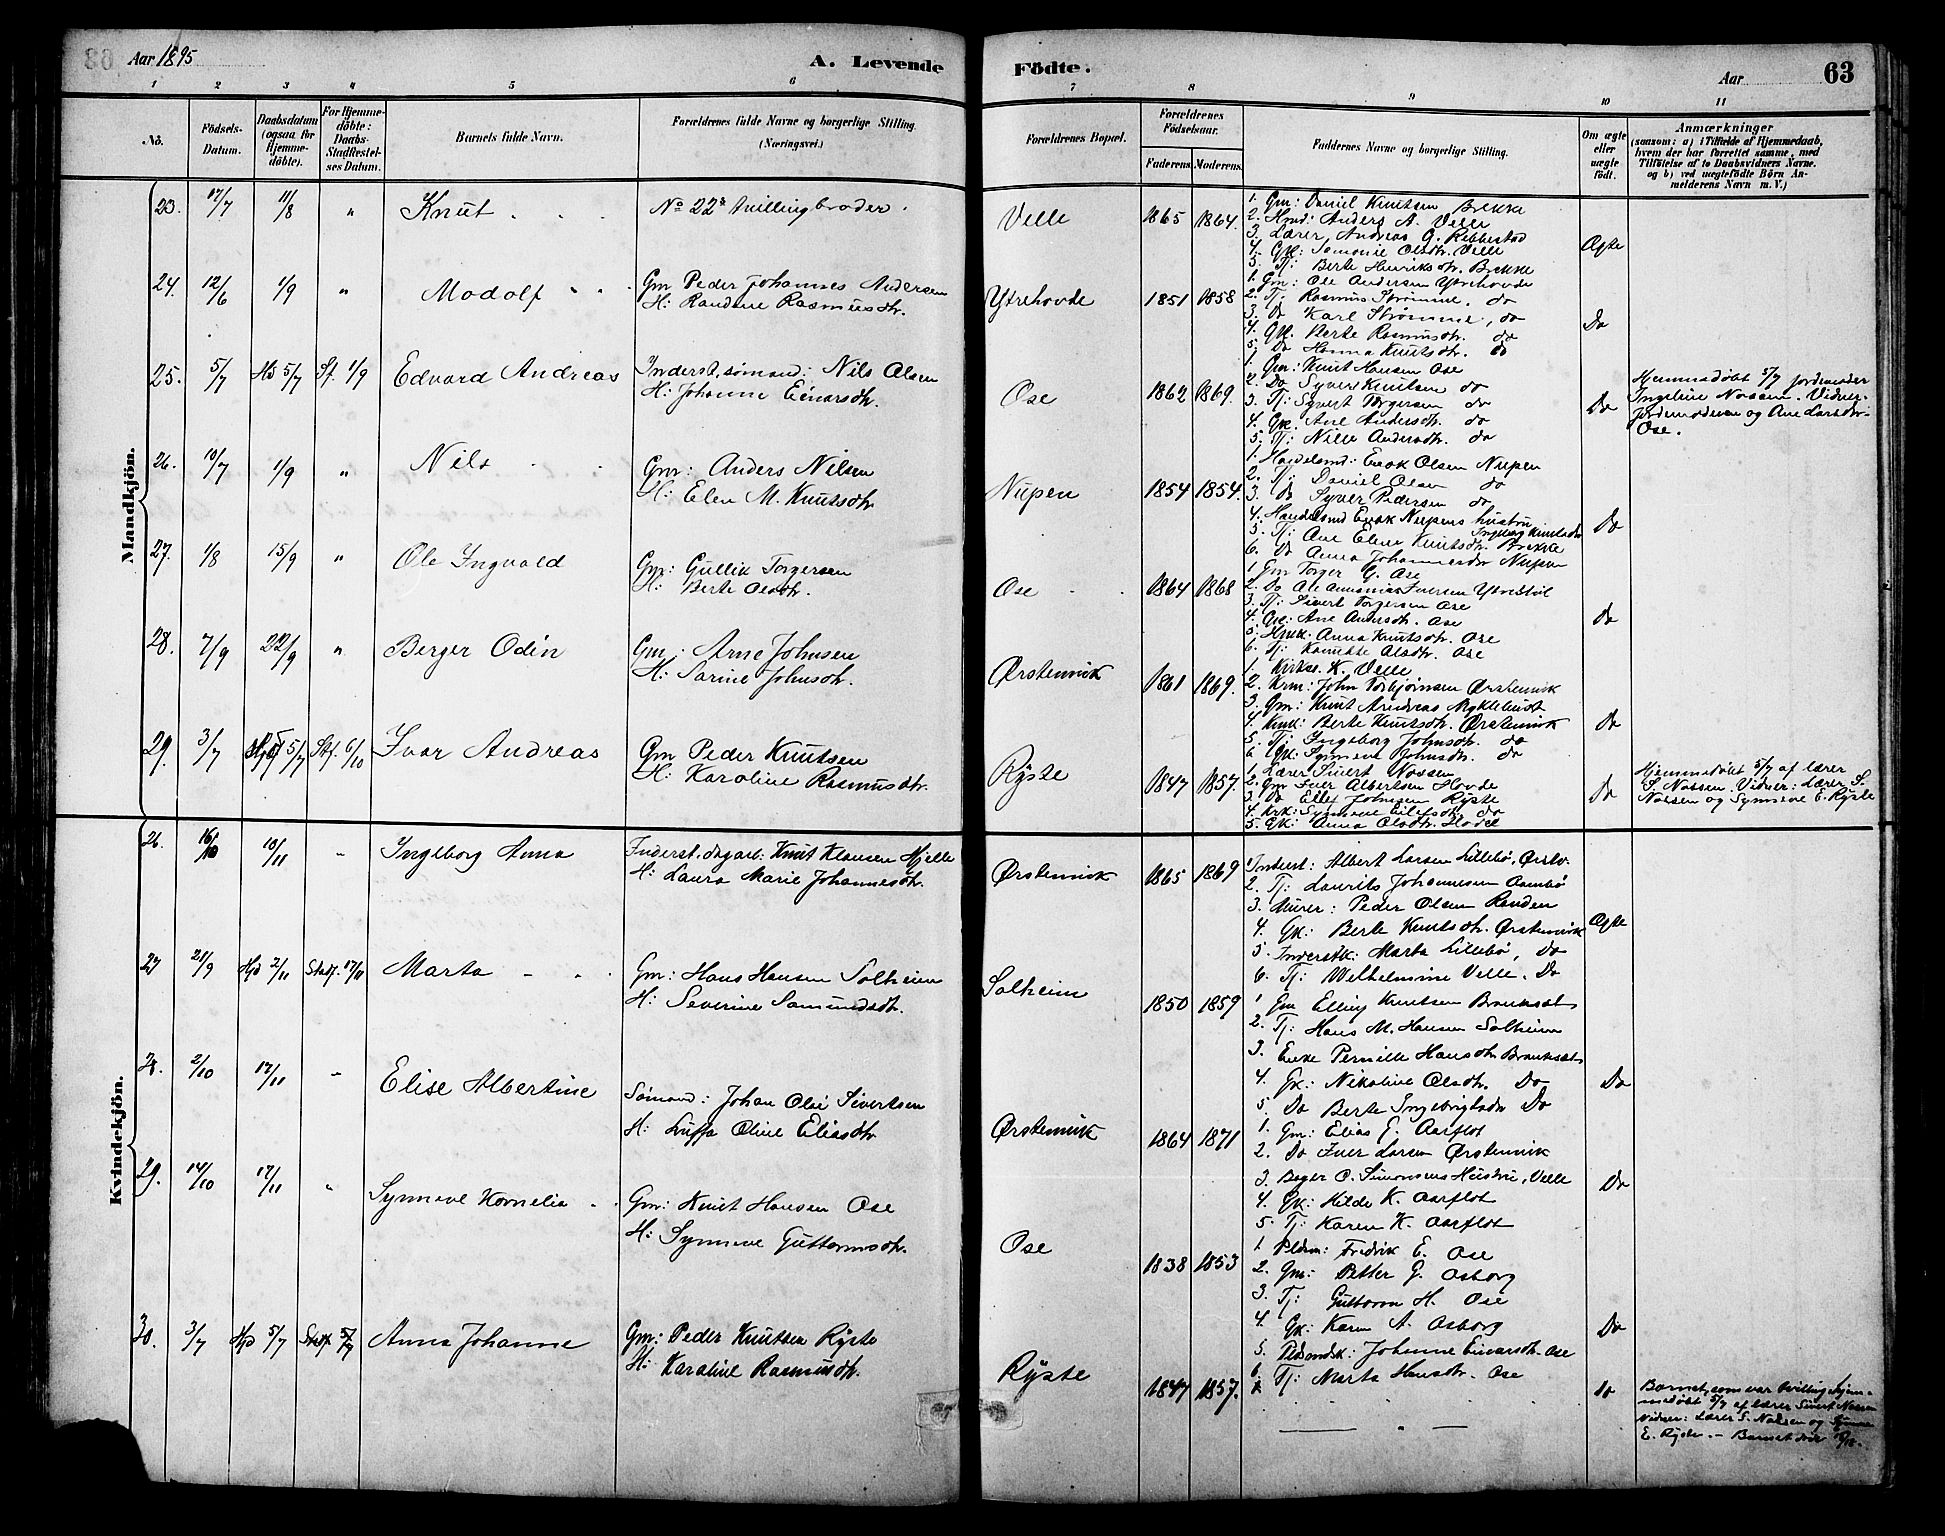 Aar 1895
A. Levende Födte.
Aar
63
1 2 3 4 5 6 7 8 9 10 11
No.
Födsels-Datum.
Daabsdatum (ogsaa for Hjemmedöbte).
For Hjemmedöbte: Daabs-Stadfestelses Datum.
Barnets fulde Navn.
Forældrenes fulde Navne og borgerlige Stilling.
(Næringsvei.)
Forældrenes Bopæl.
Forældrenes Födselsaar.
Faderens. Moderens.
Faddernes Navne og borgerlige Stilling.
Om ægte eller uægte födt.
Anmærkninger
(saasom: a) i Tilfælde af Hjemmedaab,
hvem der har forrettet samme, med
Tilföielse af to Daabsvidners Navne.
og b) ved uægtefödte Börn Anmelderens Navn m. V.)
Mandkjön.
23. 17/7 11/8 " Knut Nº 22s tvillingbroder. Velle 1865 1864.
1. Gm: Daniel Knutsen Brekke
2. Hmd: Anders A. Velle
3. Lærer, Andreas G. Rebbestad
4. Gk: Simonie Olsdtr. Velle
5. Tj: Berte Henriksdtr. Brekke
Ægte
24. 12/6 1/9 " Modolf
Gm Peder Johannes Andersen
H: Randine Rasmusdtr.
Ytrehovde 1851 1858
1. Gm: Ole Andersen Ytrehovde
2. Tj: Rasmus Strømme. do
3. Do Karl Strømme, do
4. Gk. Berte Rasmusdtr. do
5. Do Hanna Knutsdtr. do
Do
25. 5/7 Hd 5/7 St. 1/9 Edvard Andreas
Inderst, sømand: Nils Olsen
H: Johanne Einarsdtr.
Ose 1862 1869.
1. Gm: Knut Hansen Ose
2. Do Syver Knutsen do
3. Tj: Syvert Torgersen do
4. Gk. Ane Andersdtr. do
5. Tj: Nille Andersdtr. do
Do
Hjemmedøbt 5/7 jordmoder
Ingeline Nossen. Vidner:
Jordemoderen og Ane Larsdtr.
Ose.
26. 10/7 1/9 " Nils
Gm: Anders Nilsen
H: Elen M. Knutsdtr.
Nupen 1854 1854.
1. Handelsmd: Enok Olsen Nupen
2. Tj: Daniel Olsen do
3. do Syver Pedersen do
4. Handelsmd Enok Nupens hustru Ingeborg Knutsdtr
5. Tj: Ane Elene Knutsdtr. Brekke
6. Do Anna Johannesdtr Nupen
Do
27. 1/8 15/9 " Ole Ingvald
Gm: Gullik Torgersen
H: Berte Olsdtr.
Ose 1864 1868
1. Gm Torger G. Ose
2. Do Ole Iversen Ytrestøl
3. Tj: Sivert Torgersen Ose
4. Gk: Ane Andersdtr. Ose
5. Anna Knutsdtr. Ose
6. Tj: Olsdtr. Ose
Do
28. 7/9 22/9 " Berger Odin
Gm: Arne Johnsen
H: Sarine Johnsdtr.
Ørstenvik 1861 1869.
1. Kirkes. K. Velle
2. Krm: John Torbjørnsen Ørstenvik
3. Gm: Knut Andreas Myklebust
4. Krk: Berte Knutsdtr. Ørstenvik
5. Tj: Ingeborg Johnsdtr. do
6. Gk: Synneve Johnsdtr. do
Do
29. 3/7 5/7 Stf. 6/10 Ivar Andreas
Gm Peder Knutsen
H: Karoline Rasmusdtr.
Ryste 1847 1857.
1. Lærer Sivert Nossen
2. Gm Iver Albertsen Hovde
3. Do Ellef Johnsen Ryste
4. Krk: Synneve Eilefsdtr. do
5. Gk: Anna Olsdtr. Hovde
Do
Hjemmedøbt 5/7 af lærer
S. Nossen. Vidner: Lærer S.
Nossen og Synneve E. Ryste
Kvindekjön.
26. 16/10 10/11 " Ingeborg Anna
Inderst. dagarb: Knut Klausen Hjelle
H: Laura Marie Johannesdtr.
Ørstenvik 1865 1869
1. Inderst: Albert Larsen Lillebø, Ørstv.
2. Tj: Laurits Johannesen Aambø
3. Murer: Peder Olsen Randen
4. Gk: Berte Knutsdtr. Ørstenvik
5. Inderstk: Marta Lillebø, Do
6. Tj: Wilhelmine Velle. Do
Ægte
27 21/9 Hjd 2/11 Stadf. 17/11 Marta
Gm: Hans Hansen Solheim
H: Severine Samundsdtr.
Solheim 1850 1859
1. Gm Elling Knutsen Brauksæt
2. Tj: Hans M. Hansen Solheim
3. Enke Pernille Hansdtr Brauksæt
4. Gk: Nikoline Olsdtr. Do
5. Do Berte Ingebrigtsdtr Do
Do
28. 2/10 17/11 " Elise Albertine
Sømand: Johan Olai Sivertsen
H: Luffa Oline Eliasdtr
Ørstenvik 1864 1871
1. Gm: Elias E. Aarflot
2. Do Iver Larsen Ørstenvik
3. Bager C. Simonsens Hustru, Velle
4. Gk: Hilde K. Aarflot
5. Tj: Karen K. Aarflot
Do
29. 14/10 17/11 " Synneve Kornelia
Gm: Knut Hansen Ose
H: Synneve Guttormsdtr.
Ose 1838 1853
1. Pldsm: Fredrik E. Ose
2. Gm: Petter G. Osborg
3. Tj: Guttorm H. Ose
4. Gk: Karen A. Osborg
5. Pldsmdsk: Johanne Einarsdtr. Ose
6. Tj: Marta Hansdtr. Ose
Do
30. 3/7 Hjd 5/7 Stadf. Anna Johanne
Gm: Peder Knutsen Ryste
H: Karoline Rasmusdtr.
Ryste 1847 1857.
do
Barnet, som var tvilling, hjemmedøbt
5/7 af lærer Sivert Nossen
Vidner: Lærer S. Nossen og Synneve
E. Ryste. – Barnet døde